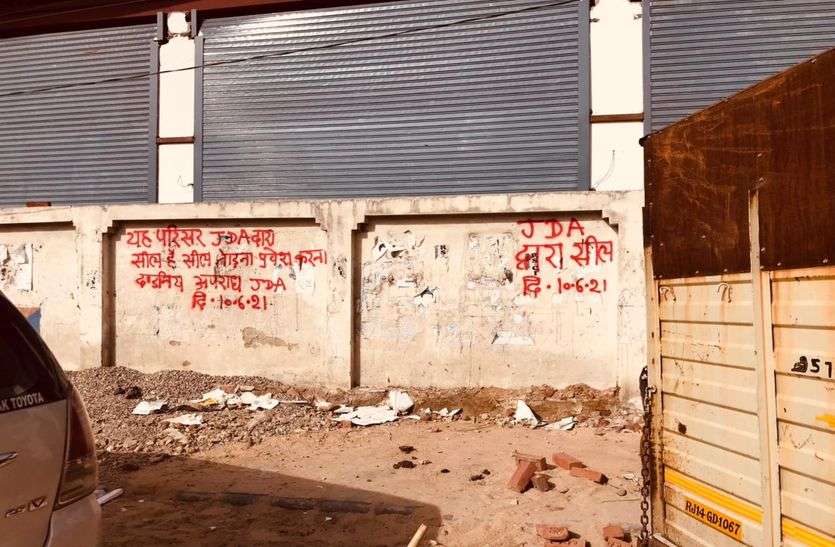 यह परिसर JDA द्वारा
सील है सील तोड़ना प्रवेश करना
दाडनिय अपराध JDA
दि. 10.6.21
JDA
द्वारा सील
दि. 10.6.21
AK TOYOTA
RJ14-GD1067